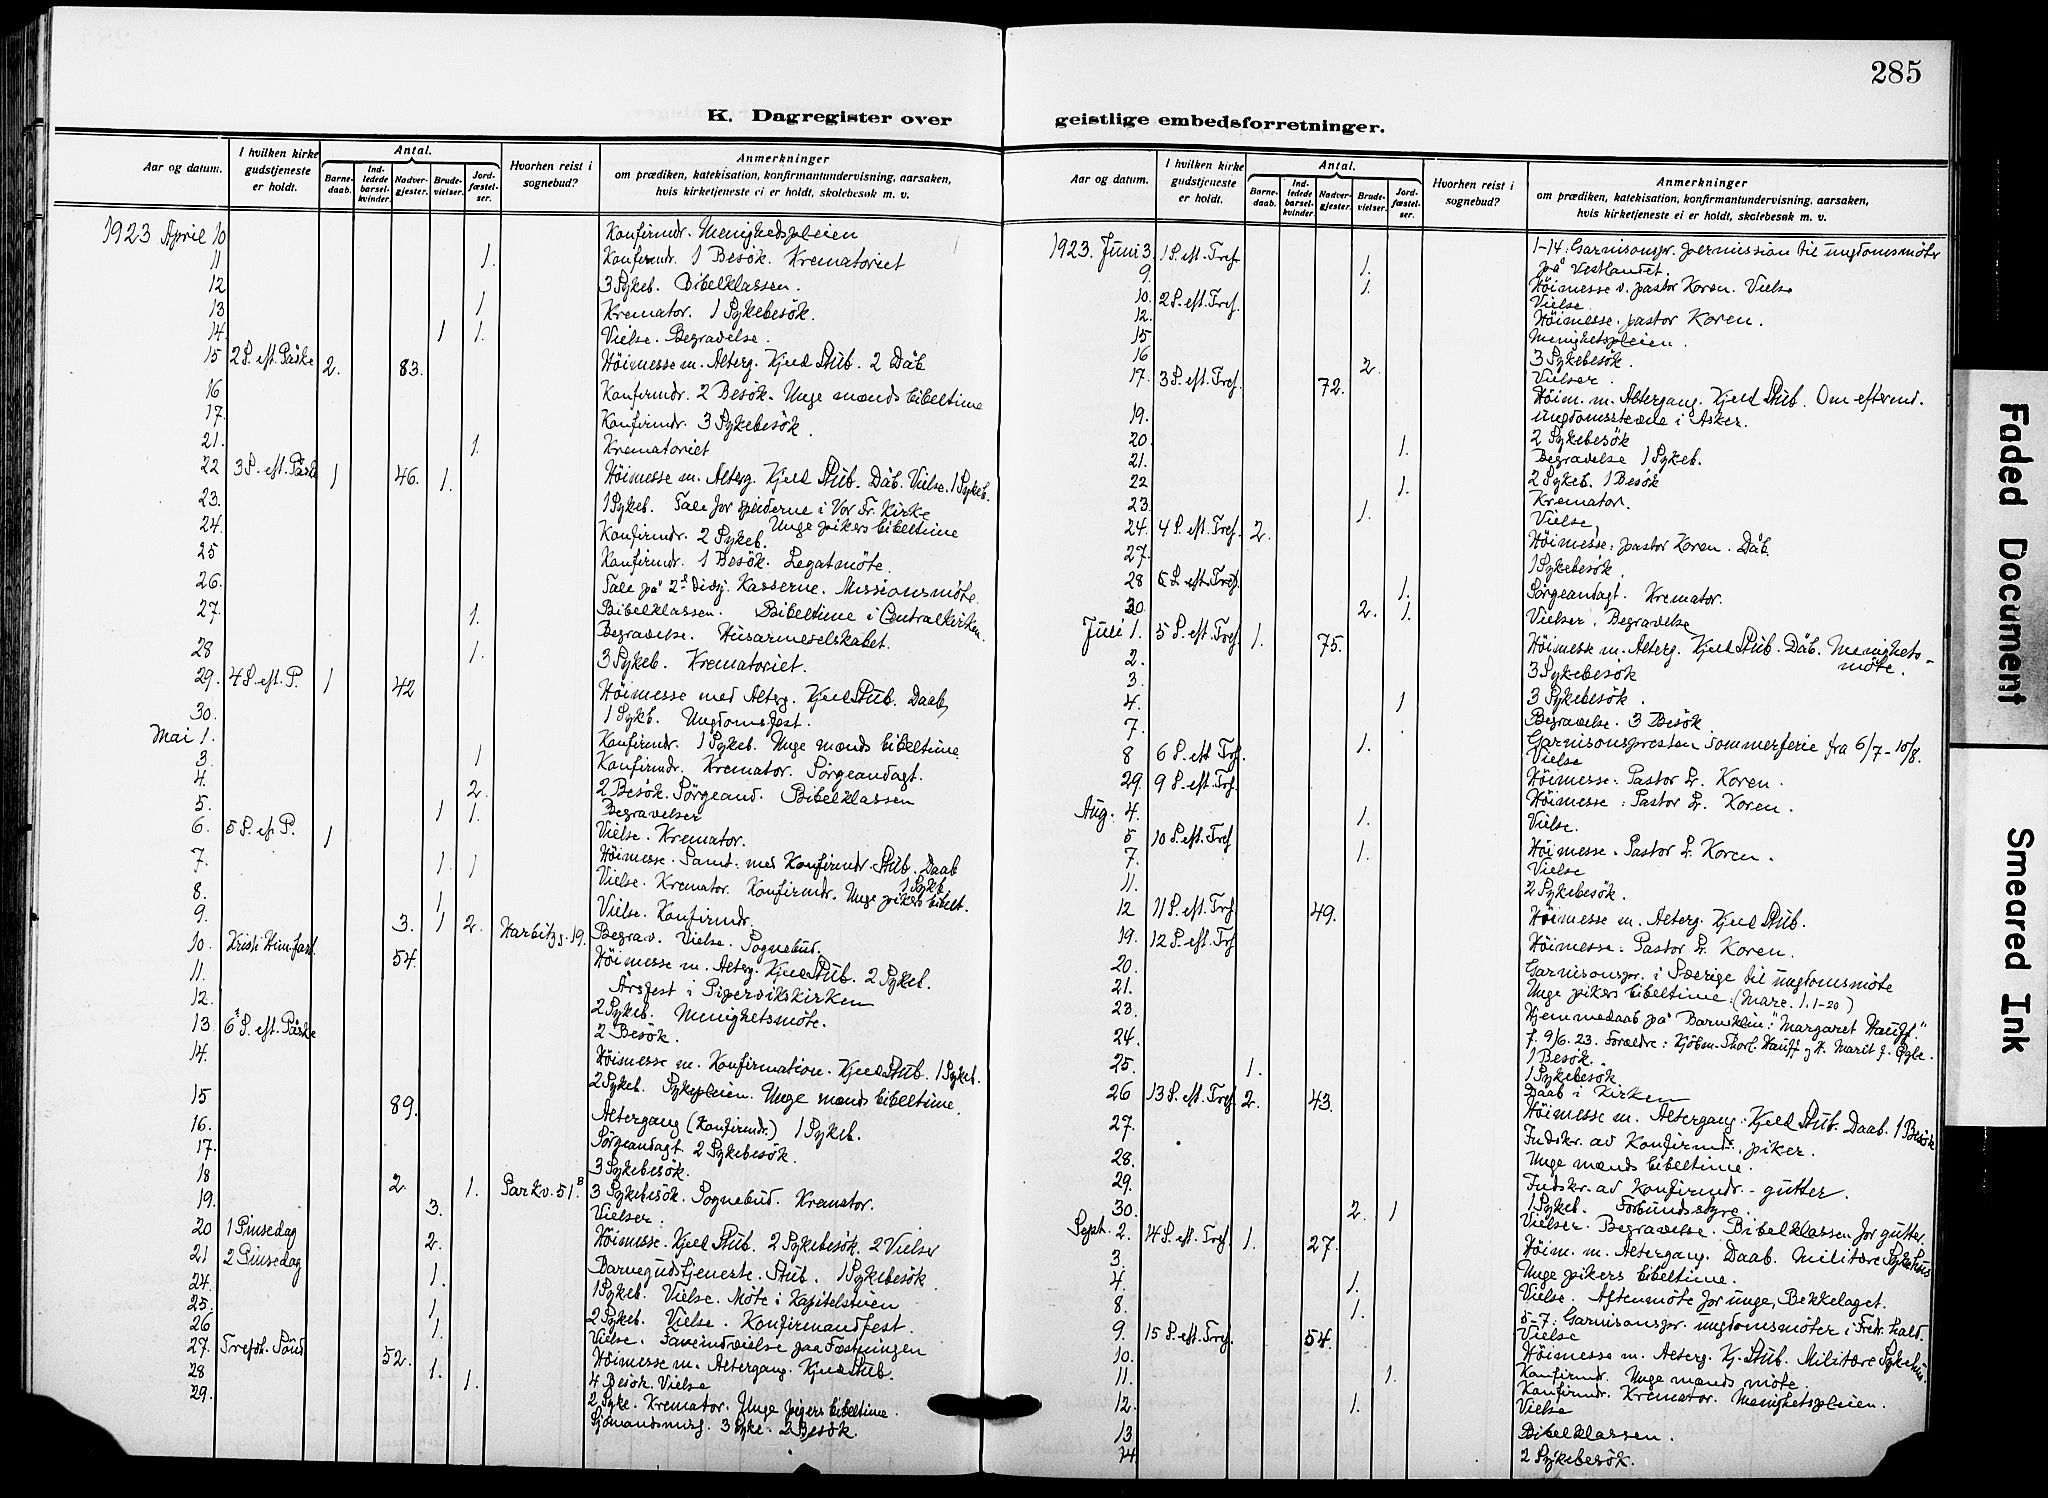 285
K. Dagregister over
Aar og datum.
I hvilken kirke gudstjeneste er holdt.
Antal.
Barnedaab.
Indledede barselkvinder.
Nadvergjester.
Brudevielser.
Jordfæstelser.
Hvorhen reist i sognebud?
Anmerkninger
om prædiken, katekisation, konfirmantundervisning, aarsaken,
hvis kirketjeneste ei er holdt, skolebesøk m. v.
1923 April 10 Konfirmdr. Menighedspleien
11 1. Konfirmdr. 1 Besök. Krematoriet
12 3 Sykeb. Bibelklassen.
13 1 Kremator. 1 Sykebesök.
14 1 1. Vielse. Begravelse.
15 2 S. eft. Påske 2. 83. Höimesse m. Alterg. Kjeld Stub. 2 Dåb
16 Konfirmdr. 2 Besök. Unge mænds bibeltime
17. Konfirmdr. 3 Sykebesök.
21. 1. Krematoriet
22 3 S. eft. Påske 1 46. 1. Höimesse m. Alterg. Kjeld Stub. Dåb. Vielse. 1 Sykeb.
23. 1 Sykeb. Tale for speiderne i Vor Fr. Kirke
24. Konfirmdr. 2 Sykeb. Unge pikers bibeltime
25 Konfirmdr. 1 Besök. Legatmöte.
26. Tale på Kasserne. Missionsmöte.
27. 1. Bibelklassen. Bibeltime i Centralkirken.
Begravelse. Husarmeselskabet.
28 1. 3 Sykeb. Krematoriet.
29. 4 S. eft. P. 1 42 Höimesse med Alterg. Kjeld Stub. Daab
30. 1 Sykb. Ungdomsfest.
Mai 1. Konfirmdr. 1 Sykeb. Unge mænds bibeltime
3. 1 Konfirmdr. Kremator. Sørgeandagt.
4. 2. 2 Besök. Sørgeand. Bibelklassen
5. 1 1. Begravelser
6. 5 S. ef. P. 1 Vielse. Kremator.
Höimesse. Sam: med Konfirmdr. Stub. Daab
7. 1 1 Vielse. Kremator. Konfirmdr. Unge pikers bibelt. 1 Sykb.
8. 1 Vielse. Konfirmdr.
9. 3. 1 2. Harbitzg. 19. Begrav. Vielse. Sognebud.
10. Kristi Him. fart 54. Höimesse m. Alterg. Kjeld Stub. 2 Sykeb.
11. Årsfest i Pipervikskirken
12. 2 Sykeb. Menighetsmöte.
13. 6 S. eft. Påske 2 Besök.
14. Höimesse m. Konfirmation. Kjeld Stub. 1 Sykeb.
2 Sykeb. Sykepleien. Unge mænds bibeltime.
15 89. Altergang (Konfirmdr.) 1 Sykeb.
16. Sørgeandagt 2 Sykebesök.
17. 3 Sykebesök.
18 2. 1. Parkv. 51.B 3 Sykebesök. Sognebud. Kremator.
19. 3. Vielser.
20 1 Pinsedag 2. Höimesse. Kjeld Stub. 2 Sykebesök. 2 Vielser
21 2 Pinsedag Barnegudstjeneste. Stub. 1 Sykebesök
24. 1. 1 Sykeb. Vielse. Möte i Kapitelstuen
25. 1 2 Sykeb. Vielse. Konfirmandfest.
26 1. Vielse. Faneindvielse paa Fæstningen
27. Trefoh. Sönd 52. Höimesse m. Altergang. Kjeld Stub.
28 1. 4 Besök. Vielse
29. 1. 2 Syke. Kremator. Unge pigers bibeltime.
3 Syke. 2 Besök.
geistlige embedsforretninger.
Aar og datum.
I hvilken kirke gudstjeneste er holdt.
Antal.
Barnedaab.
Indledede barselkvinder.
Nadvergjester.
Brudevielser.
Jordfæstelser.
Hvorhen reist i sognebud?
Anmerkninger
om prædiken, katekisation, konfirmantundervisning, aarsaken,
hvis kirketjeneste ei er holdt, skolebesøk m. v.
1923. Juni 3. 1 S. eft. Tref. 1-14: Garnisonspr. permission til ungdomsmöter
på Vestlandet.
9. 1. Höimesse v. pastor Koren. Vielse
10. 2 S. eft. Tref. 1. Vielse
12. Höimesse. pastor Koren.
15 Menighetspleien.
16 2. 3 Sykebesök.
17. 3 S. eft. Tref. 72. Vielser.
Höim. m. Altergang. Kjeld Stub. Om eftermd.
19. ungdomsstevne i Asker.
20 1. 2 Sykebesök
21. Begravelse 1 Sykeb.
22 1. 2 Sykeb. 1 Besök
23. 1. Kremator.
24. 4 S. eft. Tref. 2. Vielse,
Höimesse: pastor Koren. Dåb.
27. 1 Sykebesök
28 eft. Tref. 1. Sørgeandagt. Kremator.
30. 2. 1. Vielser. Begravelse
Juli 1. 5 S. eft. Tref. 1. 75. Höimesse m. Alterg. Kjeld Stub. Dåb. Menighetsmöte.
2. 3 Sykebesök
3. 3 Sykebesök.
4. 1 Begravelse. 3 Besök.
7. 1. Garnisonspresten sommerferie fra 6/7 - 10/8.
Vielse
8 6 S. eft Tref. Höimesse: Pastor Dr. Koren.
29. 9 S. eft. Tref. Höimesse: Pastor Dr. Koren.
Aug. 4. 1. Vielse.
5 10 S. eft. Tref Höimesse. Pastor Dr. Koren.
7. 1. Vielse
11. 2 Sykebesök.
12 11 S. eft. Tref 49. Höimesse m. Alterg. Kjeld Stub.
19. 12 S. eft. Tref Höimesse: Pastor Dr. Koren.
20. Garnisonspr. i Sverige til ungdomsmöte
21. Unge pikers bibeltime. (Marc. 1. 1-20)
23. Hjemmedaab på "Margaret Hauff."
24. f. 9/6. 23. Forældre: Kjöbm. Thorl. Hauff og H. Marit f.
1 Besök.
25. 1. 1 Sykebesök.
Daab i Kirken
26 13 S. eft. Tref. 2. 43. Höimesse m. Altergang: Kjeld Stub. Daab. 1 Besök
27. Indskr. av Konfirmdr., piker.
28. Unge mænds bibeltime.
29. Indskr. av Konfirmdr. - gutter.
30. 2. 1 1 Sykeb. Forbundsstyre.
Vielser. Begravelse. Bibelklassen for gutter.
Sept. 2. 14 S. eft. Tref 1. 27. Höim. m. Altergang. Daab. Militære Sykehus
3. Unge pikers bibeltime.
4. 1. Vielse. Aftenmöte for unge, Bekkelaget.
8. 1. 5-7: Garnisonspr. ungdomsmöter i Fredr. hald.
Vielse
9. 15 S. eft. Tref. 54. Höimesse m. Alterg. Kj. Stub. Militære Sykehus.
10. Konfirmdr. Unge mænds möte.
11. 1. Konfirmdr. Kremator. Menighetspleien.
12. 1. Vielse
13 Bibelklassen.
14. 2 Sykebesök.
Faded Document
Smeared Ink